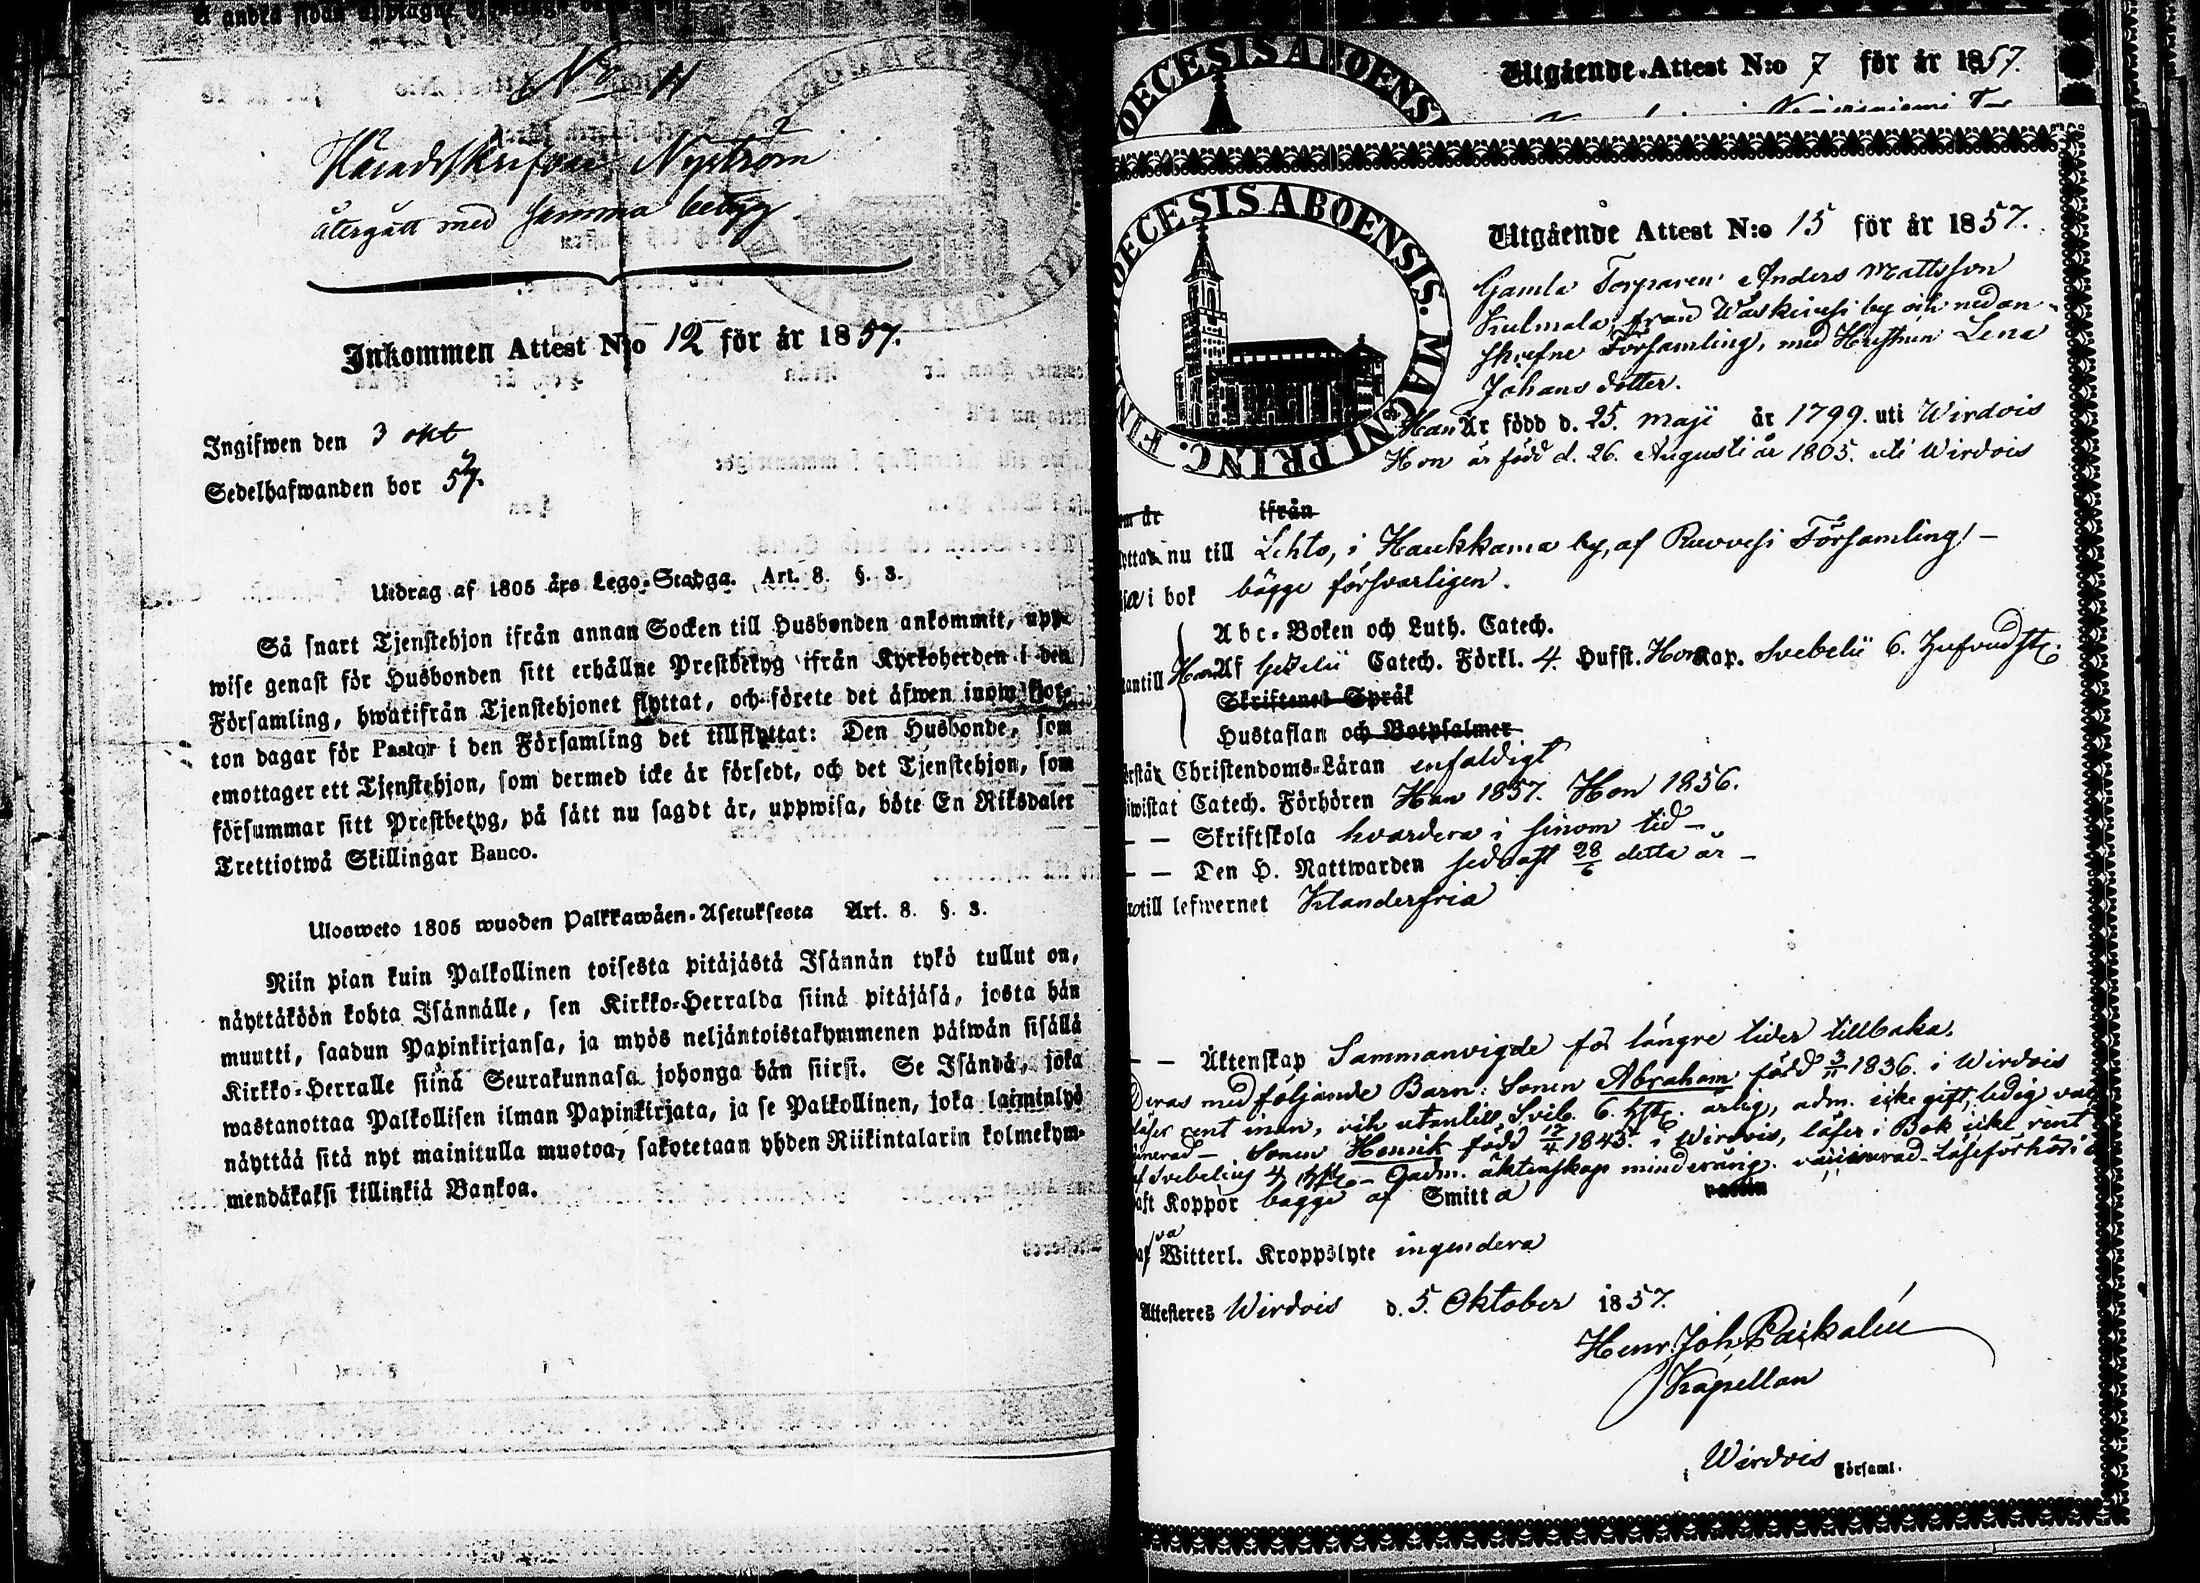 N:o 11
Häradsskrifvare Nyström
återgått med samma betyg
Inkommen Attest N:o 12 för år 1857.
Ingifwen den 3 okt
Sedelhafwanden bor 57.
Utdrag af 1805 års Lego-Stadga. Art. 8. §. 3.
Så snart Tjenstehjon ifrån annan Socken till Husbonden ankommit, upp-
wise genast för Husbonden sitt erhållne Prestbetyg ifrån Kyrkoherden i den
Församling, hwarifrån Tjenstehjonet flyttat, och förete det äfwen inom fjor-
ton dagar för Pastor i den Församling det tillflyttat: Den Husbonde, som
emottager ett Tjenstehjon, som dermed icke är försedt, och det Tjenstehjon, som
försummar sitt Prestbetyg, på sätt nu sagdt är, uppwisa, böte En Riksdaler
Trettiotwå Skillingar Banco.
Ulosweto 1805 wuoden Palkkawäen-Asetuksesta Art. 8. §. 3.
Niin pian kuin Palkollinen toisesta pitäjästä Isännän tykö tullut on,
näyttäköön kohta Isännälle, sen Kirkko-Herralda siinä pitäjäsä, josta hän
muutti, saadun Papinkirjansa, ja myös neljäntoistakymmenen päiwän sisällä
Kirkko-Herralle siinä Seurakunnasa johonga hän siirsi. Se Isändä, joka
wastanottaa Palkollisen ilman Papinkirjata, ja se Palkollinen, joka laiminlyö
näyttää sitä nyt mainitulla muotoa, sakotetaan yhden Riikintalarin kolmekym-
mendäkaksi killinkiä Bankoa.
Utgående Attest N:o 7 för år 1857.
DIOECESIS ABOENS
Utgående Attest N:o 15 för år 1857.
DIOECESIS ABOENSIS. MAGNI PRINC. FIN
Gamla Torparen Anders Mattsson
Kulmala, från Wäskivesi by och nedan-
skrefne Församling, med Hustrun Lena
Johansdotter.
Han Är född d. 25. Maji år 1799. uti Wirdois
Hon är född d. 26. Augusti år 1805. uti Wirdois
om år ifrån
flyttar nu till Lehto, i Haukkama by, af Ruovesi Församling! –
läsa i bok bägge försvarligen.
Abc-Boken och Luth. Catech.
utantill Han Af Gezelii Catech. Förkl. 4. Hufst. Hon Kap. Svebelii 6. Hufvudst.
Skriftenes Språk
Hustaflan och Botpsalmer
förstår Christendoms-Läran enfaldigt
biwistat Catech. Förhören Han 1857. Hon 1856.
– – Skriftskola hvardera i sinom tid –
– – Den H. Nattwarden sednast 28/6 detta år –
till lefwernet Klanderfria
– – Äktenskap Sammanvigde för längre tider tillbaka.
Deras med följande Barn: Sonen Abraham född 3/11 1836. i Wirdois
läser rent innan, och utantill Sveb. 6. hfst. ärlig, adm. icke gift, ledig vac
cinerad – Sonen Henrik född 17/4 1843. i Wirdois, läser i Bok icke rent
af Svebelius 4 hfst. – Oadm. äktenskap minderårig. vaccinerad – läseförhör i
haft Koppor bägge af Smitta vaccin
af Witterl. Kroppslyte ingendera
Attesteres Wirdois d. 5. Oktober 1857.
Henr. Joh. Paikalén
Kapellan
i Wirdois Församl.